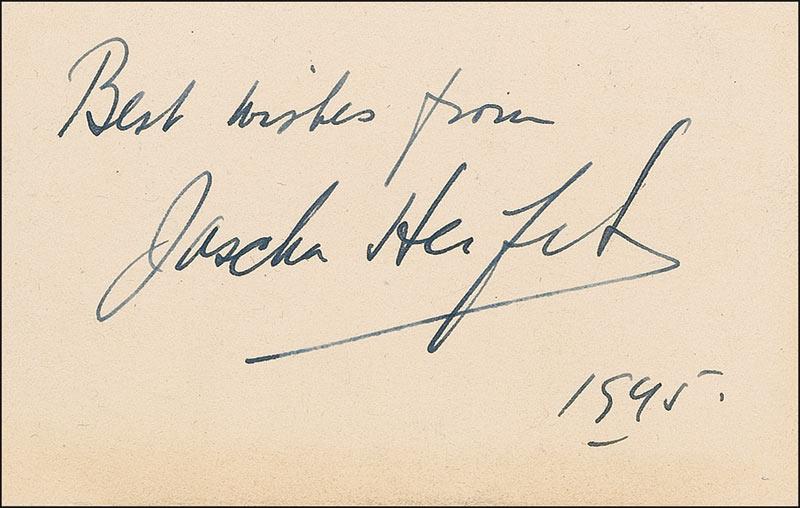 Best wishes from
Jascha Heifetz
1945.